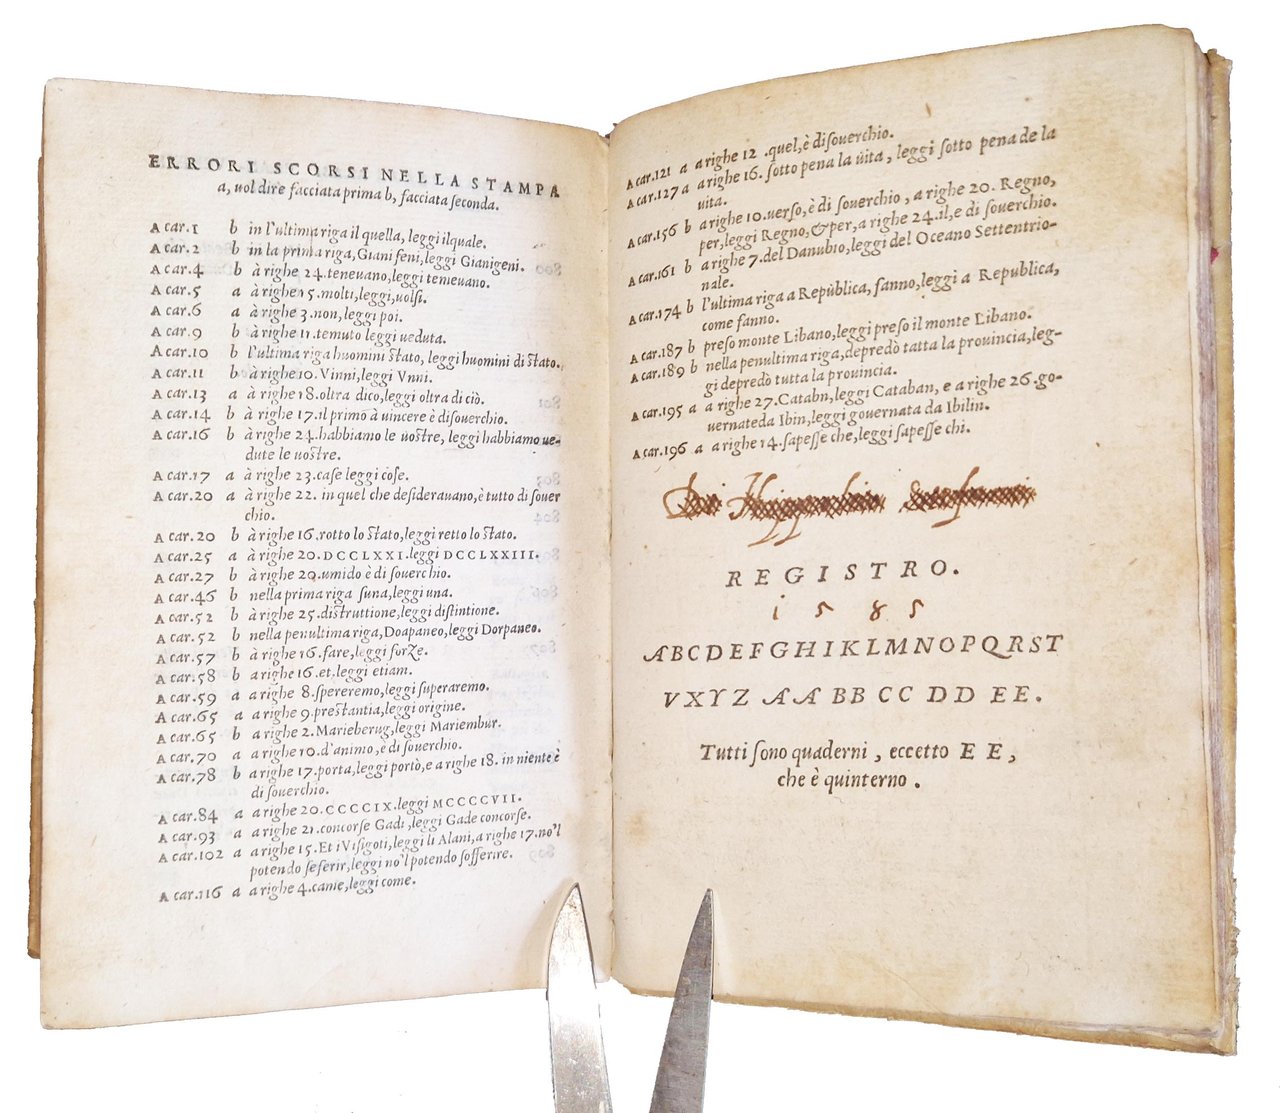 ERRORI SCORSI NELLA STAMPA
a, uol dire facciata prima b, facciata seconda.
A car.1 b in l'ultima riga il quella, leggi ilquale.
A car.2 b in la prima riga, Giani feni, leggi Gianigeni.
A car.4 b à righe 24. teneuano, leggi temeuano.
A car.5 a à righe 15. molti, leggi, uolsi.
A car.6 a à righe 3. non, leggi poi.
A car.9 b à righe 11. temuto leggi ueduta.
A car.10 b l'ultima riga huomini stato, leggi huomini di stato.
A car.11 b à righe 10. Vinni, leggi Vnni.
A car.13 a à righe 18. oltra dico, leggi oltra di ciò.
A car.14 b à righe 17. il primo à uincere è disouerchio.
A car.16 b à righe 24. habbiamo le uostre, leggi habbiamo ue-
dute le uostre.
A car.17 a à righe 23. case leggi cose.
A car.20 a à righe 22. in quel che desiderauano, è tutto di souer
chio.
A car.20 b à righe 16. rotto lo stato, leggi retto lo stato.
A car.25 a à righe 20. DCCLXXI. leggi DCCLXXIII.
A car.27 b à righe 20. umido è di souerchio.
A car.46 b nella prima riga suna, leggi una.
A car.52 b à righe 25. distruttione, leggi distintione.
A car.52 b nella penultima riga, Doapaneo, leggi Dorpaneo.
A car.57 b à righe 16. fare, leggi forze.
A car.58 b a righe 16. et, leggi etiam.
A car.59 a a righe 8. spereremo, leggi superaremo.
A car.65 a a righe 9. prestantia, leggi origine.
A car.65 b a righe 2. Marieberug, leggi Mariembur.
A car.70 a a righe 10. d'animo, è di souerchio.
A car.78 b a righe 17. porta, leggi portò, e a righe 18. in niente è
di souerchio.
A car.84 a a righe 20. CCCCIX. leggi MCCCCVII.
A car.93 a a righe 21. concorse Gadi, leggi Gade concorse.
A car.102 a a righe 15. Et i Visigoti, leggi li Alani, a righe 17. no'l
potendo seferir, leggi no'l potendo sofferire.
A car.116 a a righe 4. came, leggi come.
A car.121 a a righe 12 .quel, è di souerchio.
A car.127 a a righe 16. sotto pena la uita, leggi sotto pena de la
uita.
A car.156 b a righe 10. uerso, è di souerchio, a righe 20. Regno,
per, leggi Regno, & per, a righe 24. il, e di souerchio.
A car.161 b a righe 7. del Danubio, leggi del Oceano Settentrio-
nale.
A car.174 b l'ultima riga a Republica, fanno, leggi a Republica,
come fanno.
A car.187 b preso monte Libano, leggi preso il monte Libano.
A car.189 b nella penultima riga, depredò tatta la prouincia, leg-
gi depredò tutta la prouincia.
A car.195 a a righe 27. Catabn, leggi Cataban, e a righe 26. go-
uernateda Ibin, leggi gouernata da Ibilin.
A car.196 a a righe 14. sapesse che, leggi sapesse chi.
REGISTRO.
1585
ABCDEFGHIKLMNOPQRST
VXYZ AA BB CC DD EE.
Tutti sono quaderni, eccetto EE,
che è quinterno.